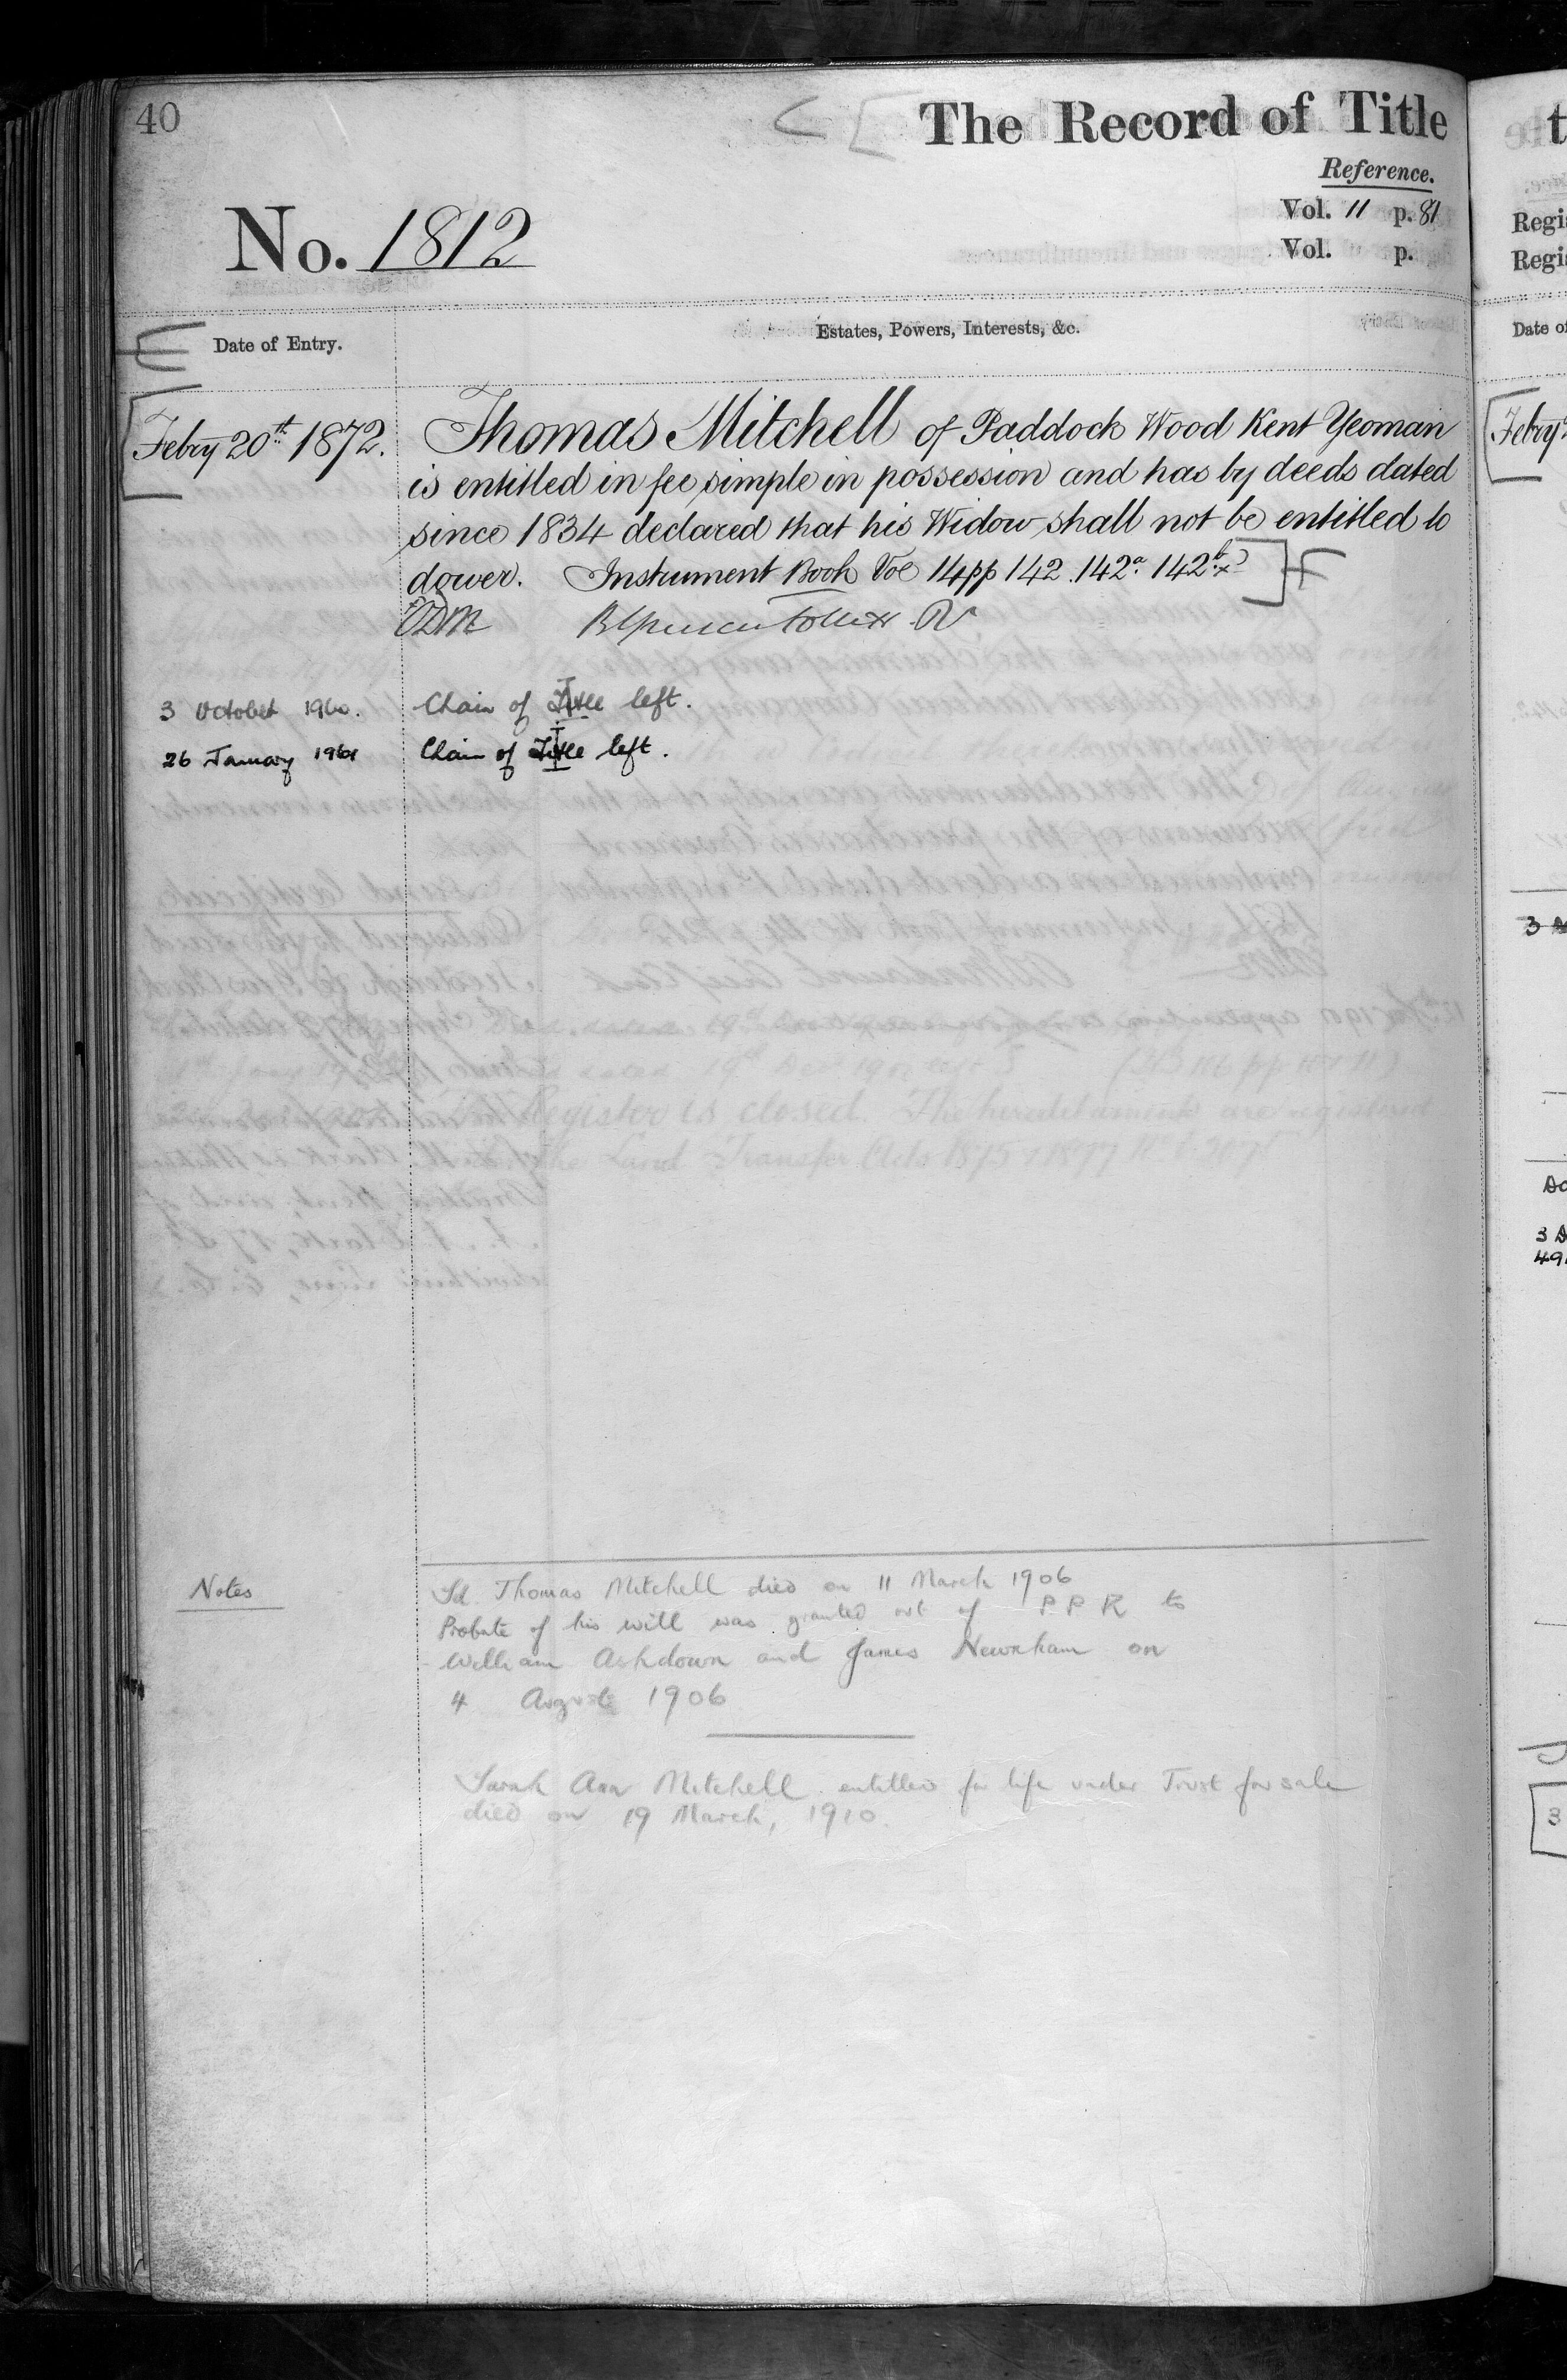 40
The Record of Title
Reference.
Vol. 11 p. 81
Vol. p.
No. 1812
Date of Entry.
Estates, Powers, Interests, &c.
Febry 20th 1872.
Thomas Mitchell of Paddock Wood Kent Yeoman
is entitled in fee simple in possession and has by deeds dated
since 1834 declared that his Widow shall not be entitled to
dower. Instrument Book Vol 14 pp 142. 142a 142b
3 October 1960. Chain of Title left.
26 January 1961 Chain of Title left.
Register is closed. The hereditaments are registered
the Land Transfer Acts 1875 & 1897
Notes
Sd. Thomas Mitchell died on 11 March 1906
Probate of his will was granted out of P P R to
William Ashdown and James Newnham on
4 August 1906
Sarah Ann Mitchell entitled for life under Trust for sale
died on 19 March, 1910.
t
Regis
Regis
Date of
Febry
3
Da
3 D
49
3